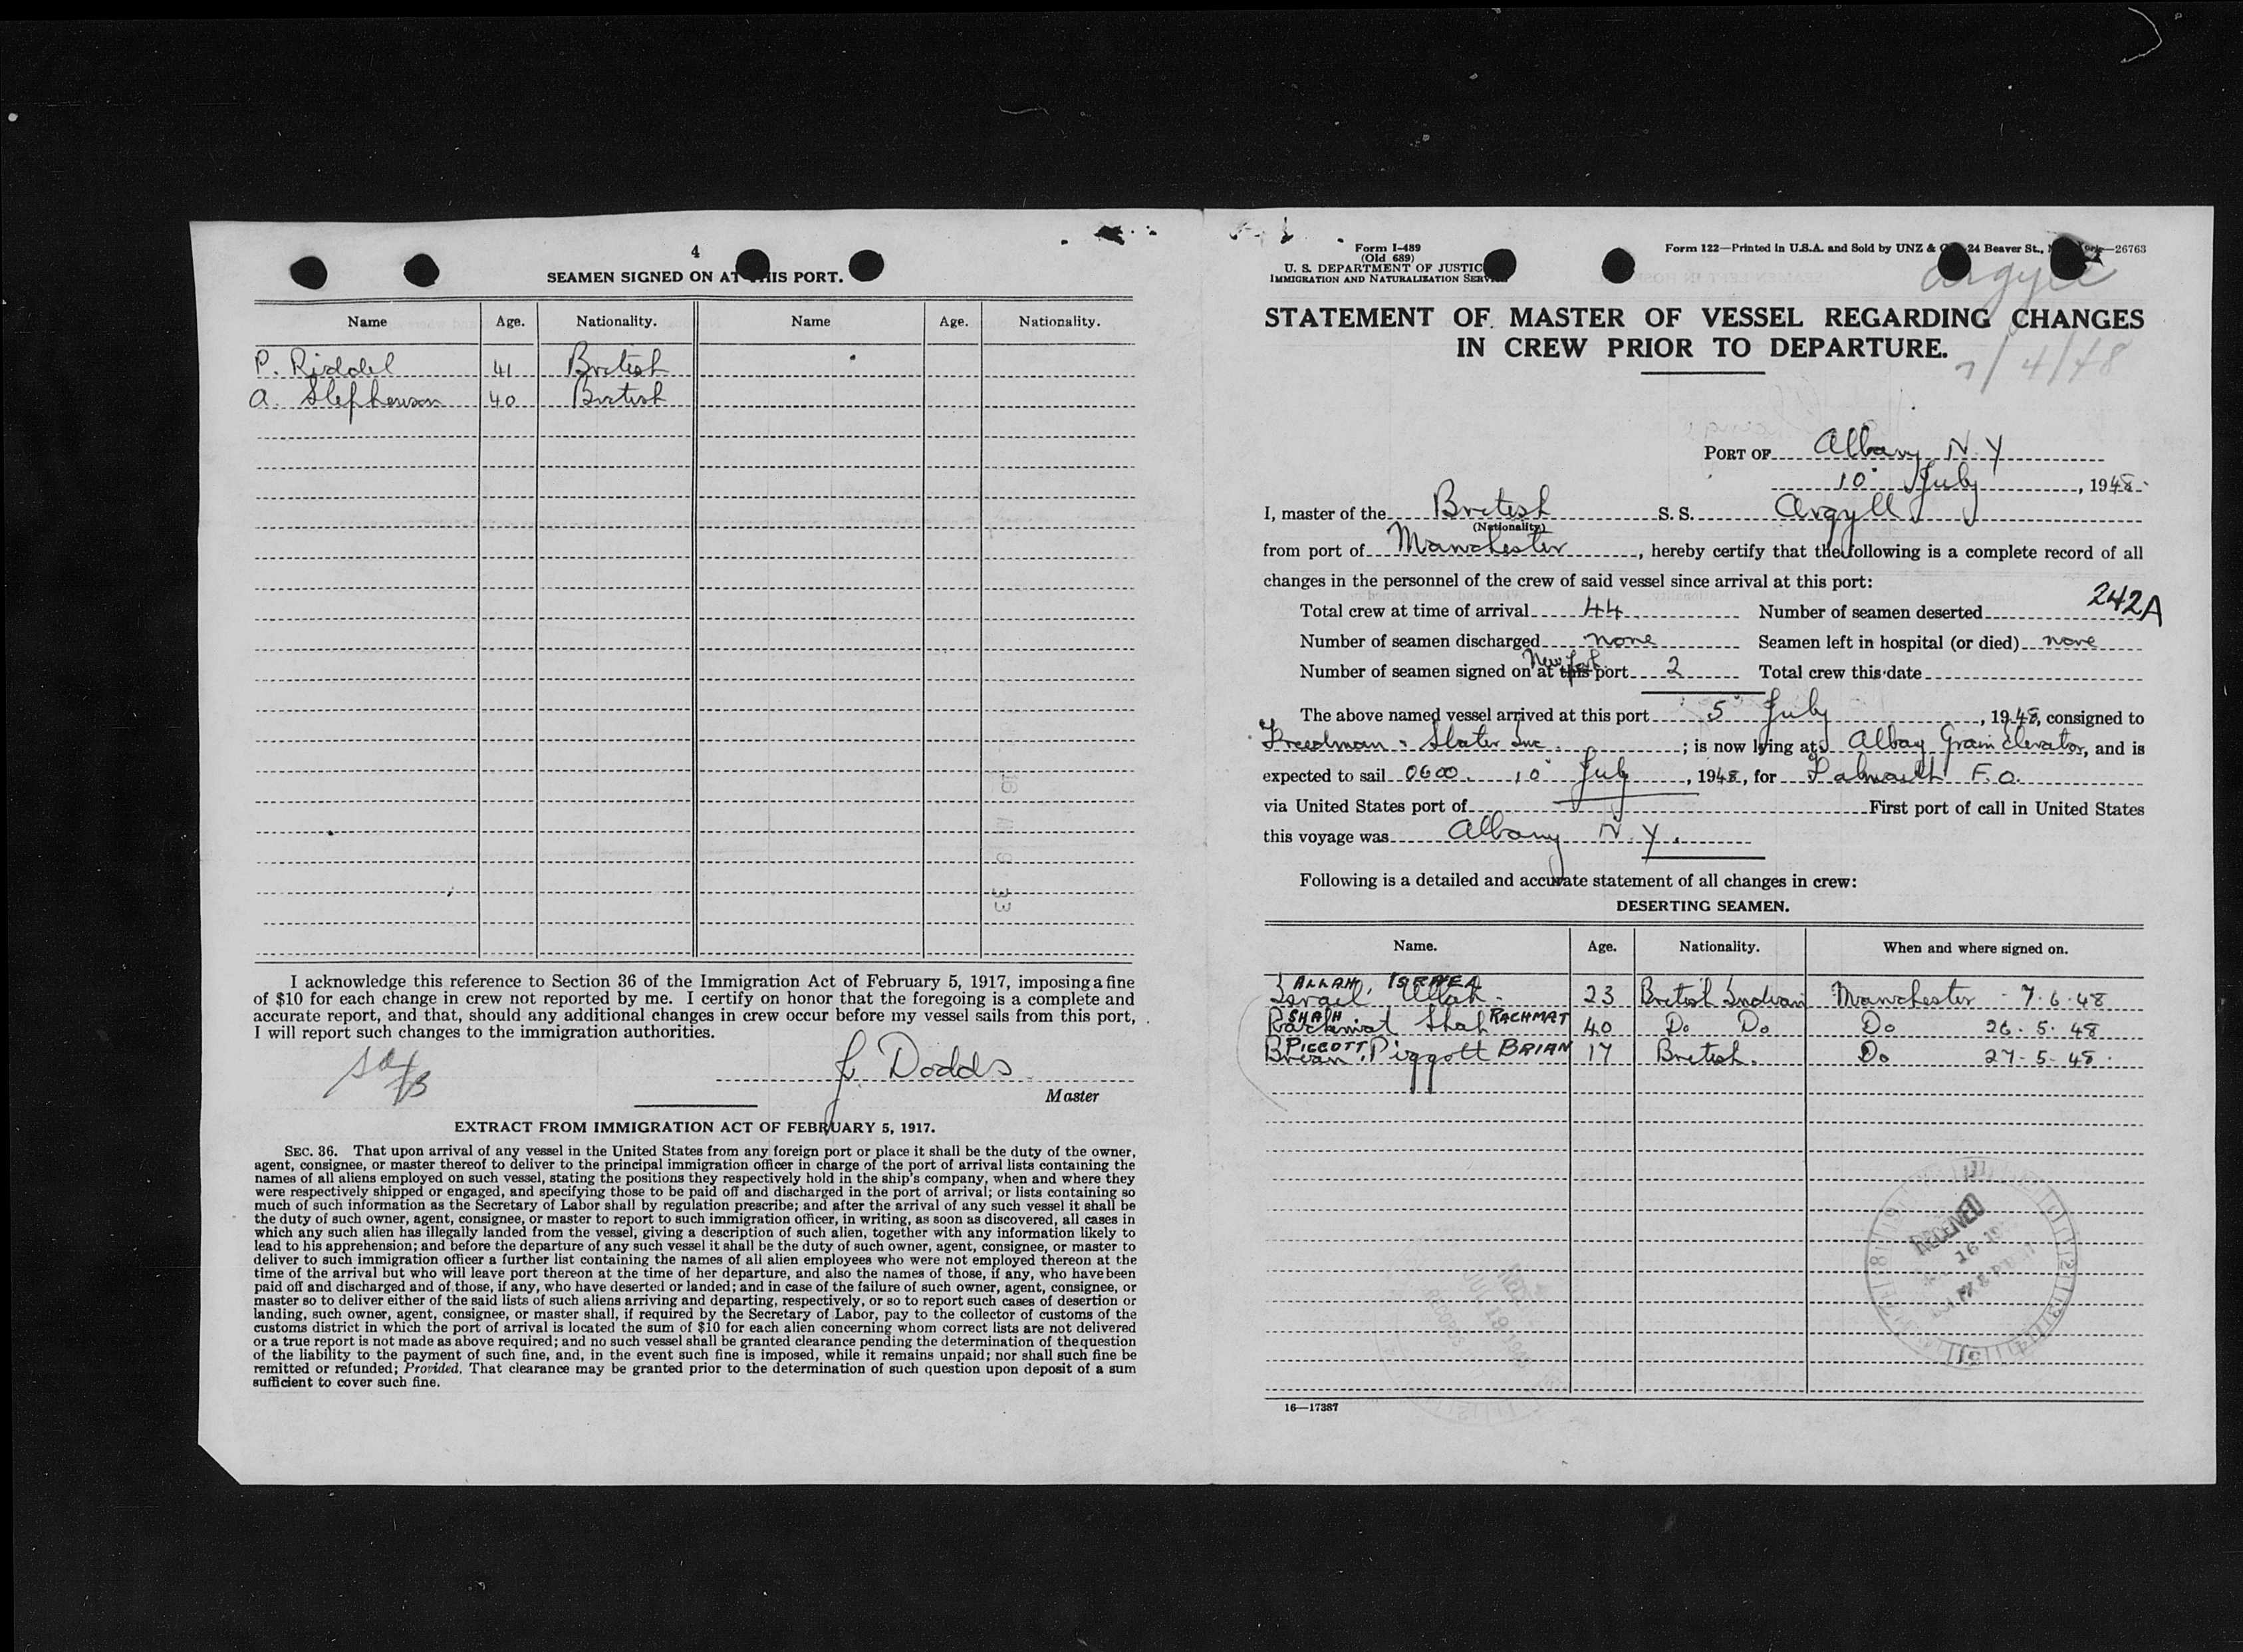 4
SEAMEN SIGNED ON AT THIS PORT.
Name Age. Nationality. Name Age. Nationality.
P. Riddel 41 British
A. Stephenson 40 British
I acknowledge this reference to Section 36 of the Immigration Act of February 5, 1917, imposing a fine
of $10 for each change in crew not reported by me. I certify on honor that the foregoing is a complete and
accurate report, and that, should any additional changes in crew occur before my vessel sails from this port,
I will report such changes to the immigration authorities.
J. Dodds
Master
EXTRACT FROM IMMIGRATION ACT OF FEBRUARY 5, 1917.
SEC. 36. That upon arrival of any vessel in the United States from any foreign port or place it shall be the duty of the owner,
agent, consignee, or master thereof to deliver to the principal immigration officer in charge of the port of arrival lists containing the
names of all aliens employed on such vessel, stating the positions they respectively hold in the ship's company, when and where they
were respectively shipped or engaged, and specifying those to be paid off and discharged in the port of arrival; or lists containing so
much of such information as the Secretary of Labor shall by regulation prescribe; and after the arrival of any such vessel it shall be
the duty of such owner, agent, consignee, or master to report to such immigration officer, in writing, as soon as discovered, all cases in
which any such alien has illegally landed from the vessel, giving a description of such alien, together with any information likely to
lead to his apprehension; and before the departure of any such vessel it shall be the duty of such owner, agent, consignee, or master to
deliver to such immigration officer a further list containing the names of all alien employees who were not employed thereon at the
time of the arrival but who will leave port thereon at the time of her departure, and also the names of those, if any, who have been
paid off and discharged and of those, if any, who have deserted or landed; and in case of the failure of such owner, agent, consignee, or
master so to deliver either of the said lists of such aliens arriving and departing, respectively, or so to report such cases of desertion or
landing, such owner, agent, consignee, or master shall, if required by the Secretary of Labor, pay to the collector of customs of the
customs district in which the port of arrival is located the sum of $10 for each alien concerning whom correct lists are not delivered
or a true report is not made as above required; and no such vessel shall be granted clearance pending the determination of the question
of the liability to the payment of such fine, and, in the event such fine is imposed, while it remains unpaid; nor shall such fine be
remitted or refunded; Provided, That clearance may be granted prior to the determination of such question upon deposit of a sum
sufficient to cover such fine.
Form I-489
(Old 689)
U. S. DEPARTMENT OF JUSTICE
IMMIGRATION AND NATURALIZATION SERVICE
Form 122—Printed in U.S.A. and Sold by UNZ & 24 Beaver St., 26763
Argyll
STATEMENT OF MASTER OF VESSEL REGARDING CHANGES
IN CREW PRIOR TO DEPARTURE.
7/4/48
PORT OF Albany N.Y
10 July, 1948.
I, master of the British S. S. Argyll
(Nationality)
from port of Manchester, hereby certify that the following is a complete record of all
changes in the personnel of the crew of said vessel since arrival at this port:
242A
Total crew at time of arrival 44 Number of seamen deserted
Number of seamen discharged none Seamen left in hospital (or died) none
New York
Number of seamen signed on at this port 2 Total crew this date
The above named vessel arrived at this port 5 July, 1948, consigned to
Freedman & Slater Inc.; is now lying at Albay Grain Elevator, and is
expected to sail 0600. 10 July, 1948, for Falmouth F.O.
via United States port of First port of call in United States
this voyage was Albany N.Y.
Following is a detailed and accurate statement of all changes in crew:
DESERTING SEAMEN.
Name. Age. Nationality. When and where signed on.
ALLAH, ISRAEL
Israel Allah. 23 British Indian Manchester - 7.6.48
SHAH RACHMAT
Rachmat Shah 40 Do Do Do 26.5.48
PIGGOTT BRIAN
Brian Piggott 17 British. Do 27-5-48.
RECEIVED
16
16—17387